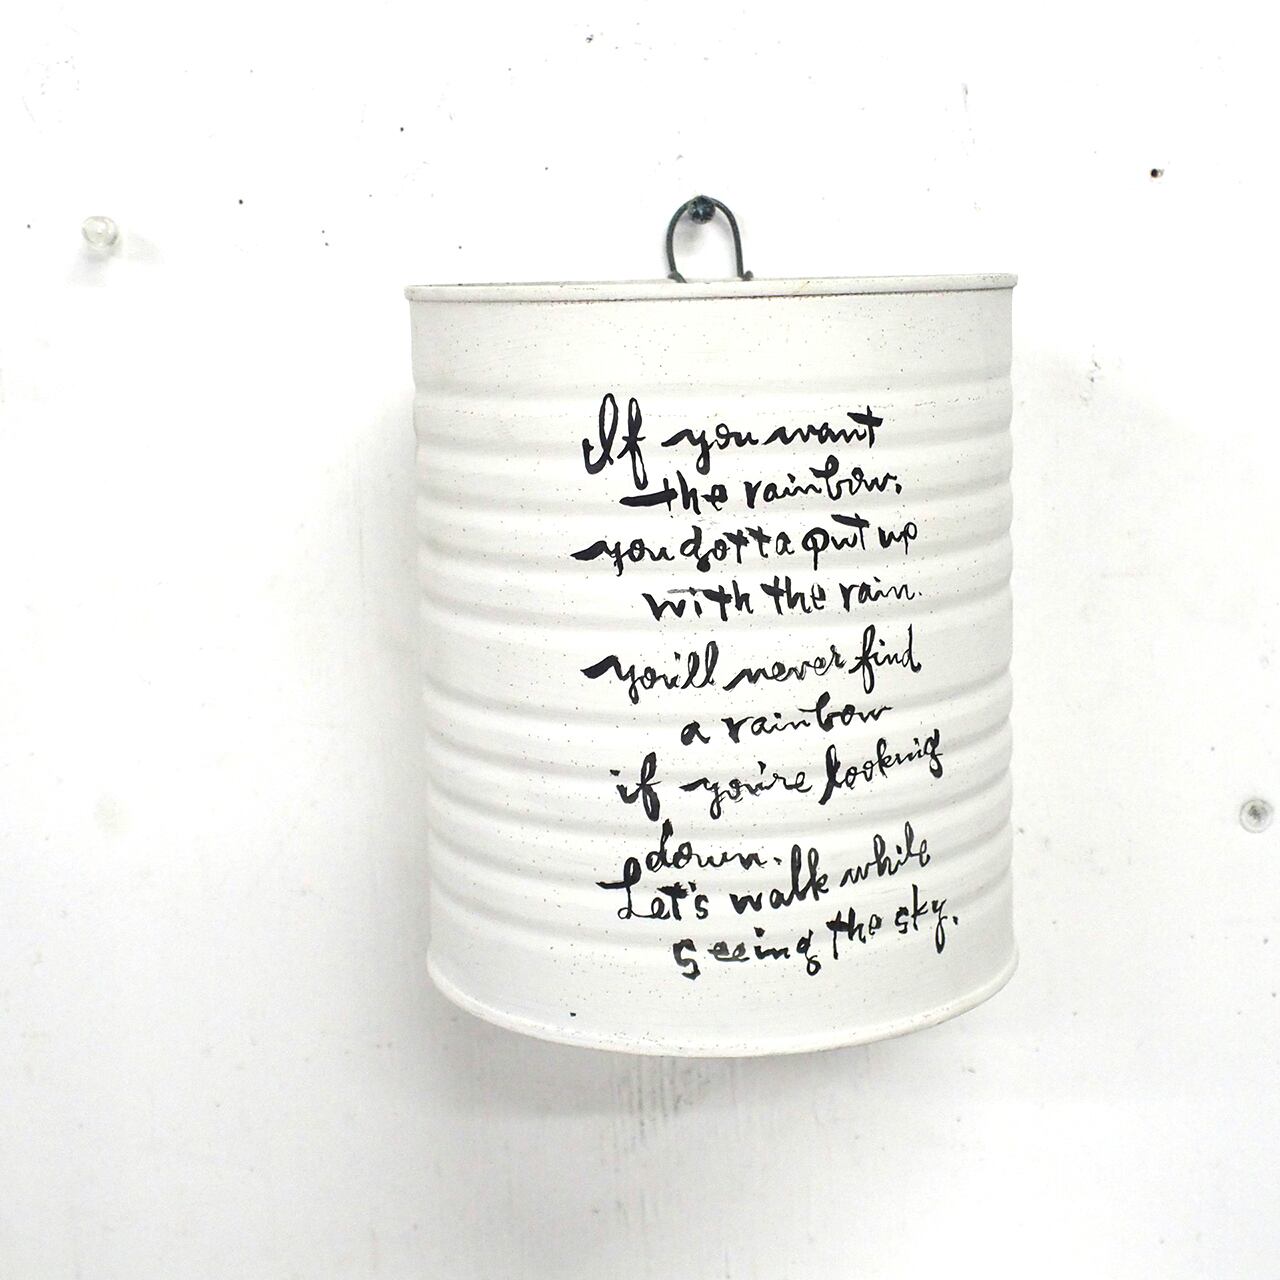 If you want
the rainbow,
you gotta put up
with the rain.
you'll never find
a rainbow
if you're looking
down.
Let's walk while
seeing the sky.